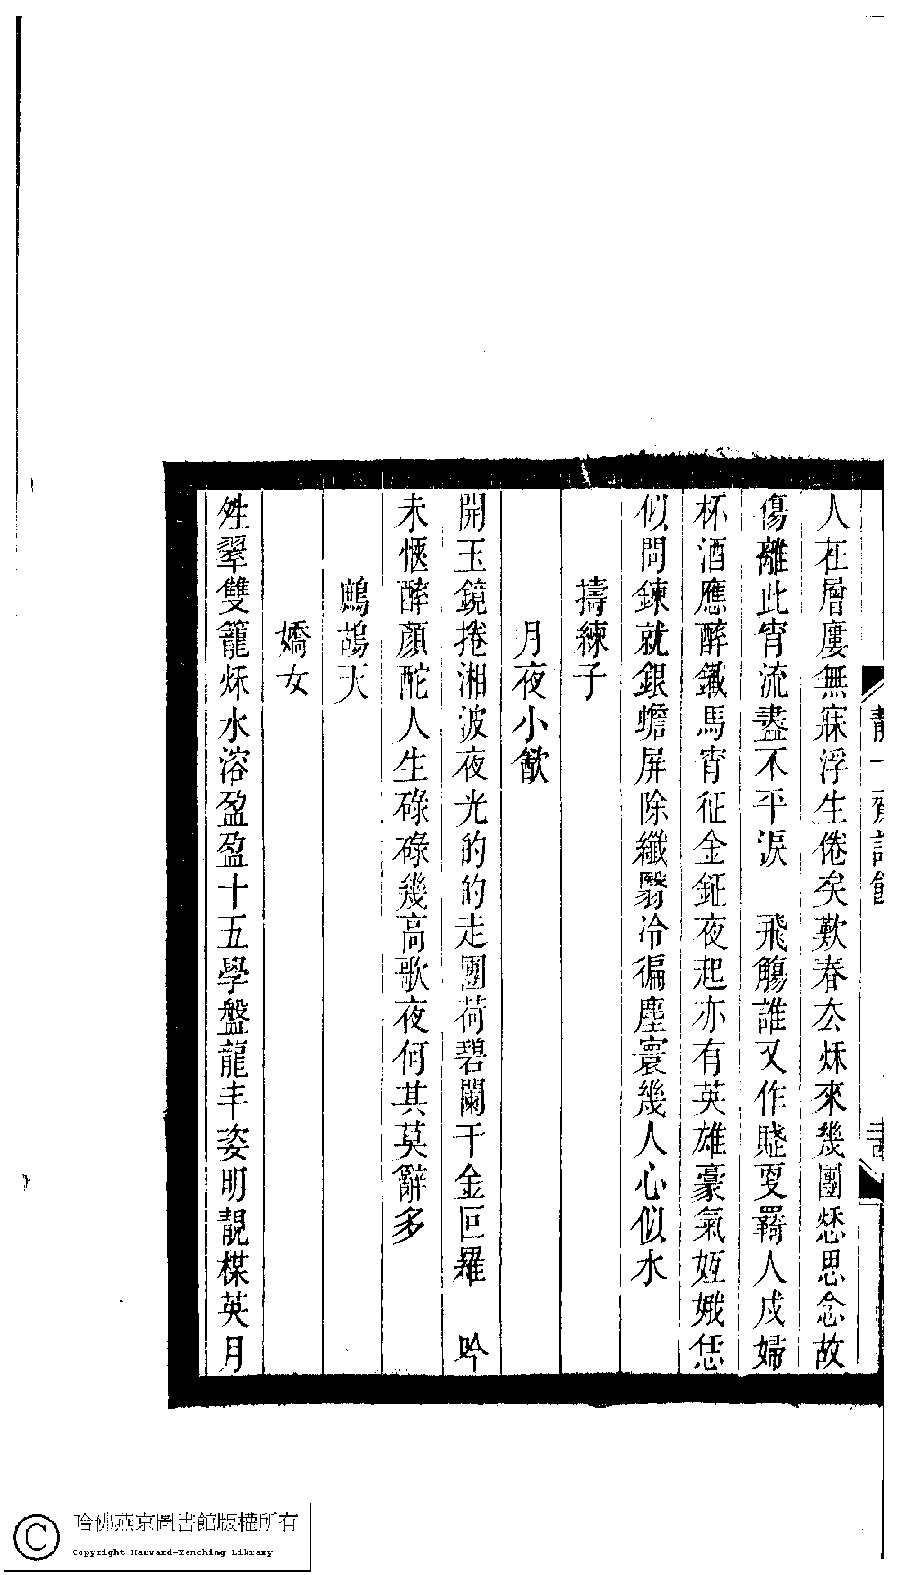 人在層廔無寐浮生倦矣歎春厺烁來幾團愁思念故
傷離此宵流盡不平淚　飛觴誰又作賤耍羇人戍婦
杯酒應醉鐵馬宵征金鉦夜起亦有英雄豪氣姮娥恁
似問鍊就銀蟾屏除纖翳冷徧塵寰幾人心似水
擣練子
月夜小歈
開玉鏡捲湘波夜光的的走團荷碧闌干金叵羅　吟
未愜醉顏酡人生碌碌幾高歌夜何其莫辭多
鷓鴣天
嬌女
雙籠烁水溶盈盈十五學盤龍丰姿明靚楳英月
哈佛燕京圖書館版權所有
Copyright Harvard-Yenching Library